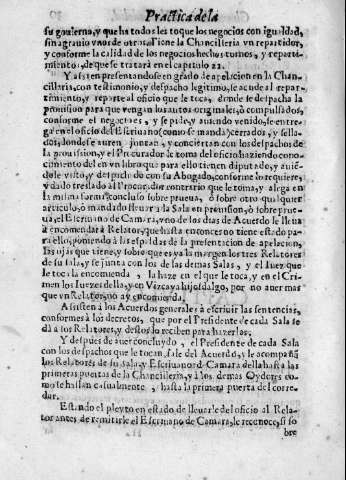 Practica de la
su gouierno, y que ha todos les toque los negocios con igualdad,
sin agrauio vnos de otros. Tiene la Chancilleria vn repartidor,
y conforme la calidad de los negocios hechos turnos, y repartimiento, de que se tratarà en el capitulo 22.
Y assi en presentandose en grado de apelacion en la Chancillaria, con testimonio, y despacho legitimo, se acude al repartimiento, y reparte al oficio que le toca, donde se despacha la
prouision para que vengan los autos originales, ò compulsados,
conforme el negocio es, y se pide, y auiendo venido, se entregan en el oficio del Escriuano (como se manda) cerrados, y sellados, donde se auren, juntan, y conciertan con los despachos de
la prouission, y el Procurador le toma del oficio haziendo conocimiento del en vn libro que para ello tienen diputado, y auiendole visto, y despachado con su Abogado, conforme lo requiere,
y dado treslado al Procurador contrario que le toma, y alega en
la misma forma: concluso sobre prueua, ò sobre otro qualquier
articulo, ò mandado lleuar à la Sala en prouision, ò sobre prueua, el Escriuano de Camara, vno de los dias de Acuerdo le lleua
à encomendar à Relator, que hasta entonces no tiene estado para ello, poniendo à las espaldas de la presentacion de apelacion,
las ojas que tiene, y sobre esso y a la margen los tres Relatores
de su sala, y se junta con los de las demas Salas, y el Iuez que
le toca la encomienda, la haze en el que le toca, y en el Crimen los Iuezes della, y en Vizcaya hijosdalgo, por no auer mas
que vn Relator, no ay encomienda.
Assisten à los Acuerdos generales à escriuir las sentencias,
conformes à los decretos, que por el Presidente de cada Sala se
dà à los Relatores, y destos lo reciben para hazerlas.
Y despues de auer concluydo, el Presidente de cada Sala
con los despachos que le tocan, sale del Acuerdo, y le acompañã
los Relatores de su Sala, y Escriuano de Camara della hasta las
primeras puertas de la Chancilleria, y à los demas Oydores como se hallan casualmente, hasta la primera puerta del corredor.
Estando el pleyto en estado de lleuarle del oficio al Relator antes de remitirle el Escriuano de Camara, le reconoce, si so
bre